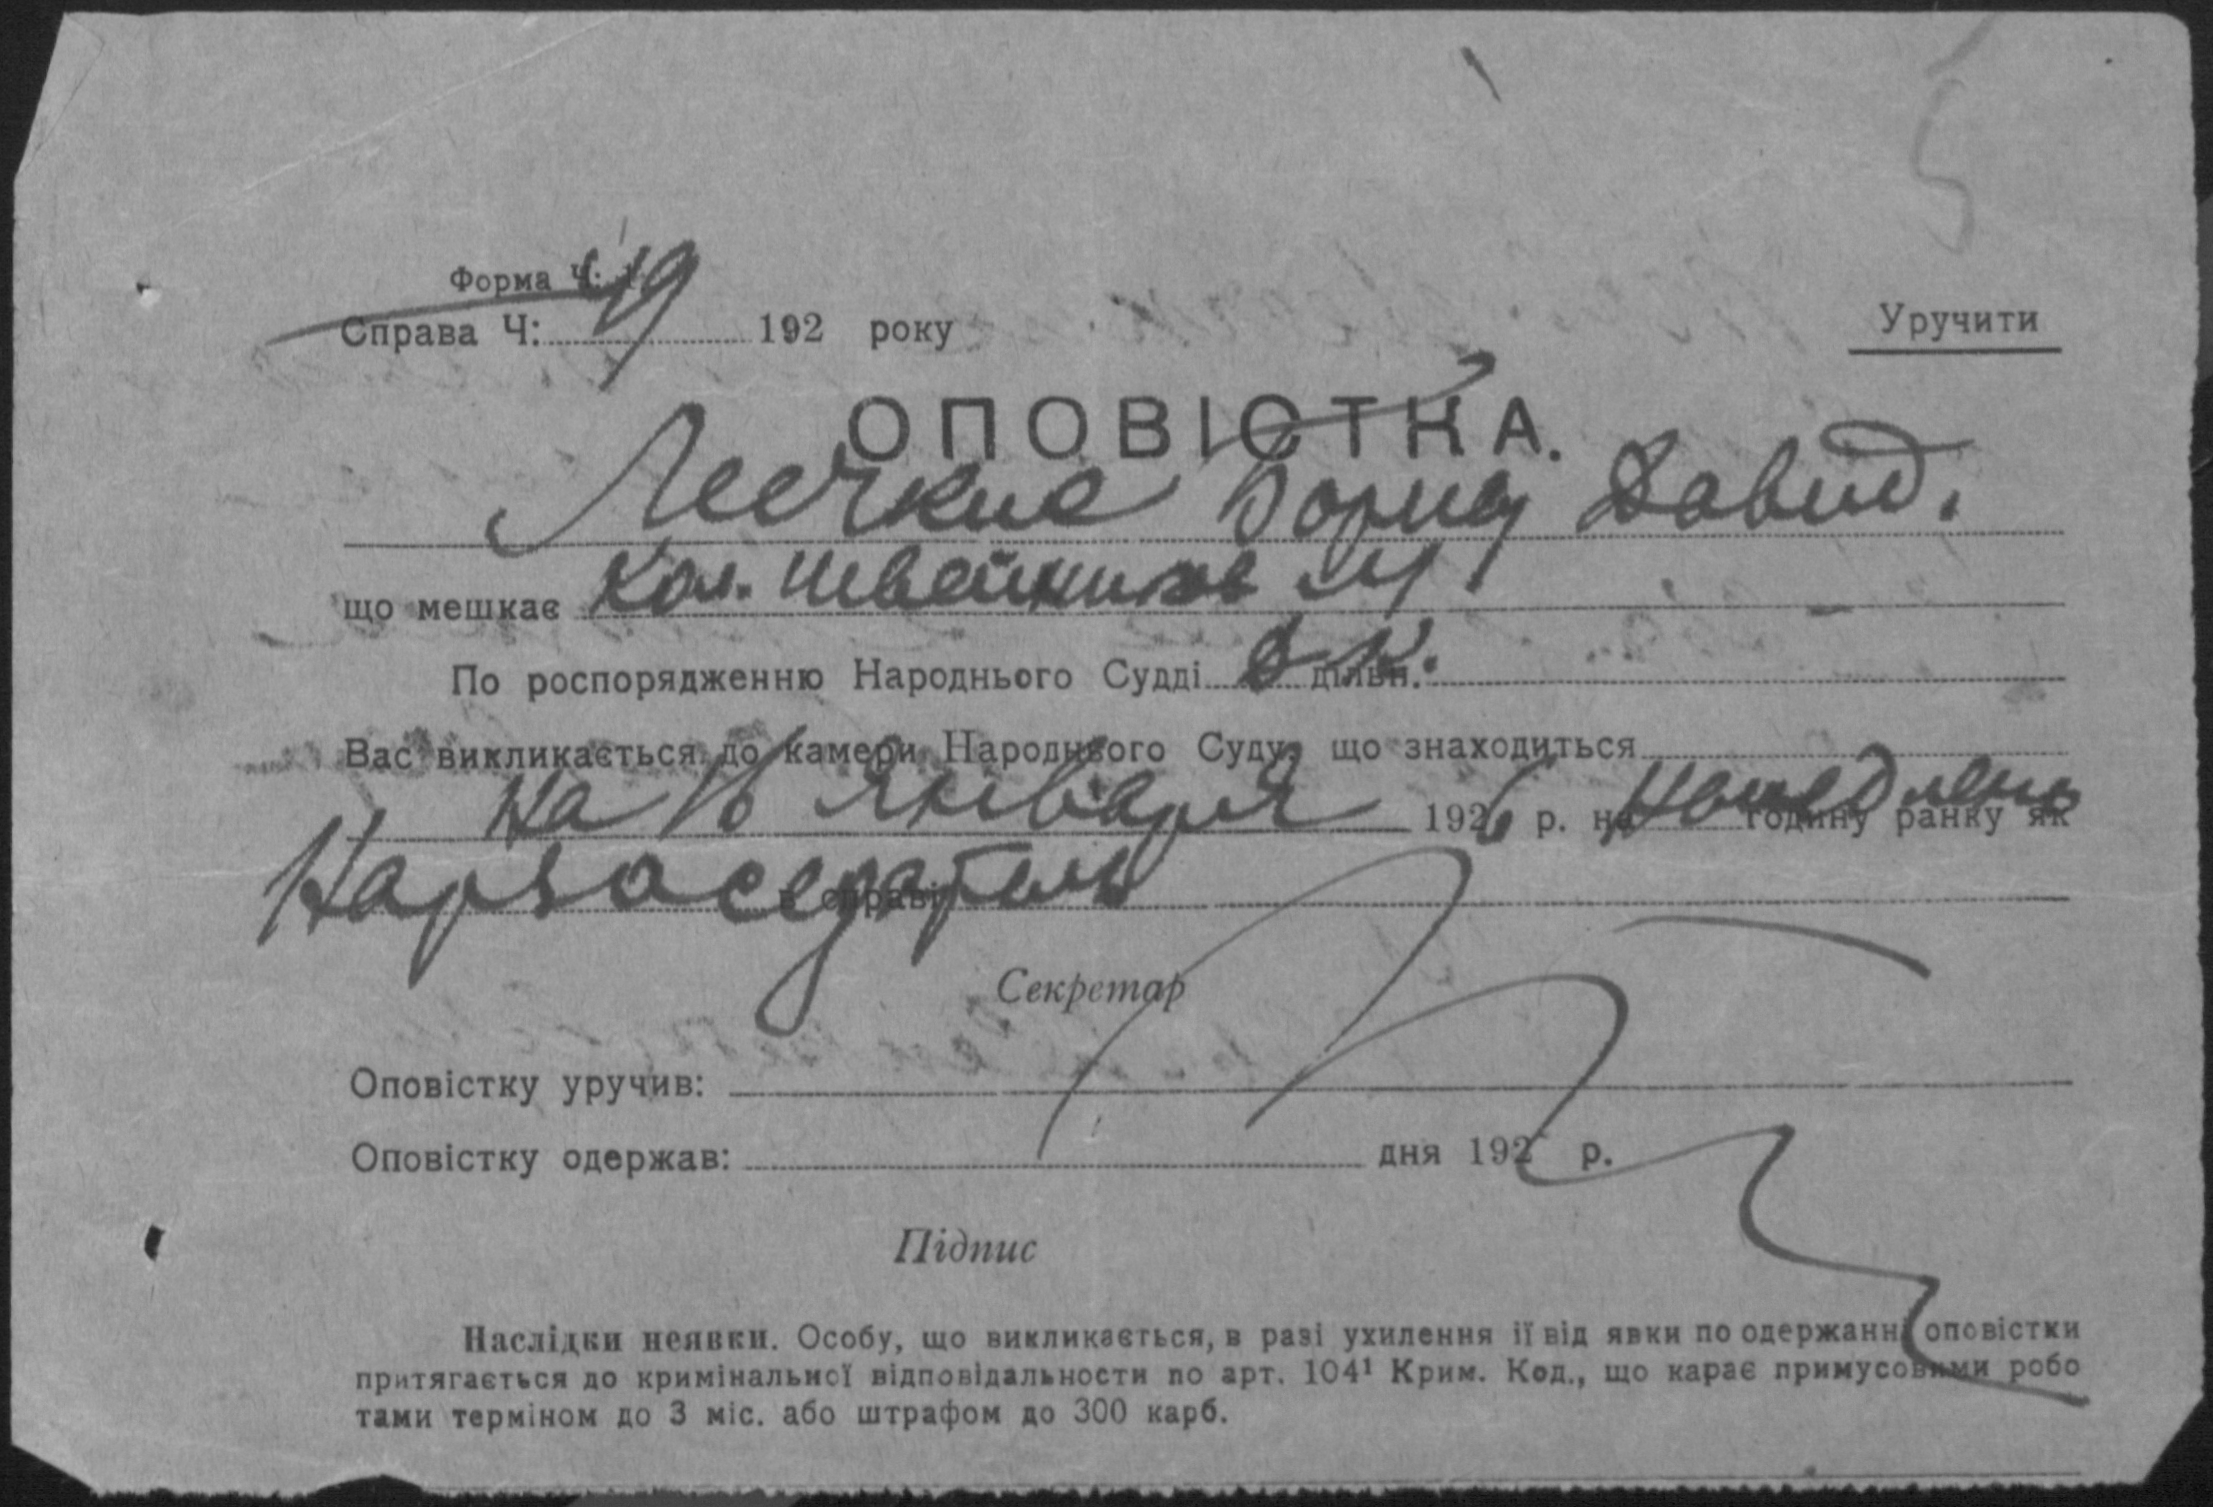 5
Форма Ч: 1
Справа Ч: 49 192 року
Уручити
ОПОВІСТКА.
Борису Давид.
що мешкає Кол. швейников
По роспорядженню Народнього Судді дільн.
Вас викликається до камери Народнього Суду, що знаходиться
на 16 Января 1926 р. на годину ранку як
Нарзаседатель в справі
Секретар
Оповістку уручив:
Оповістку одержав: дня 192 р.
Підпис
Наслідки неявки. Особу, що викликається, в разі ухилення її від явки по одержанні оповістки
притягається до кримінальної відповідальности по арт. 104¹ Крим. Код., що карає примусовими робо
тами терміном до 3 міс. або штрафом до 300 карб.